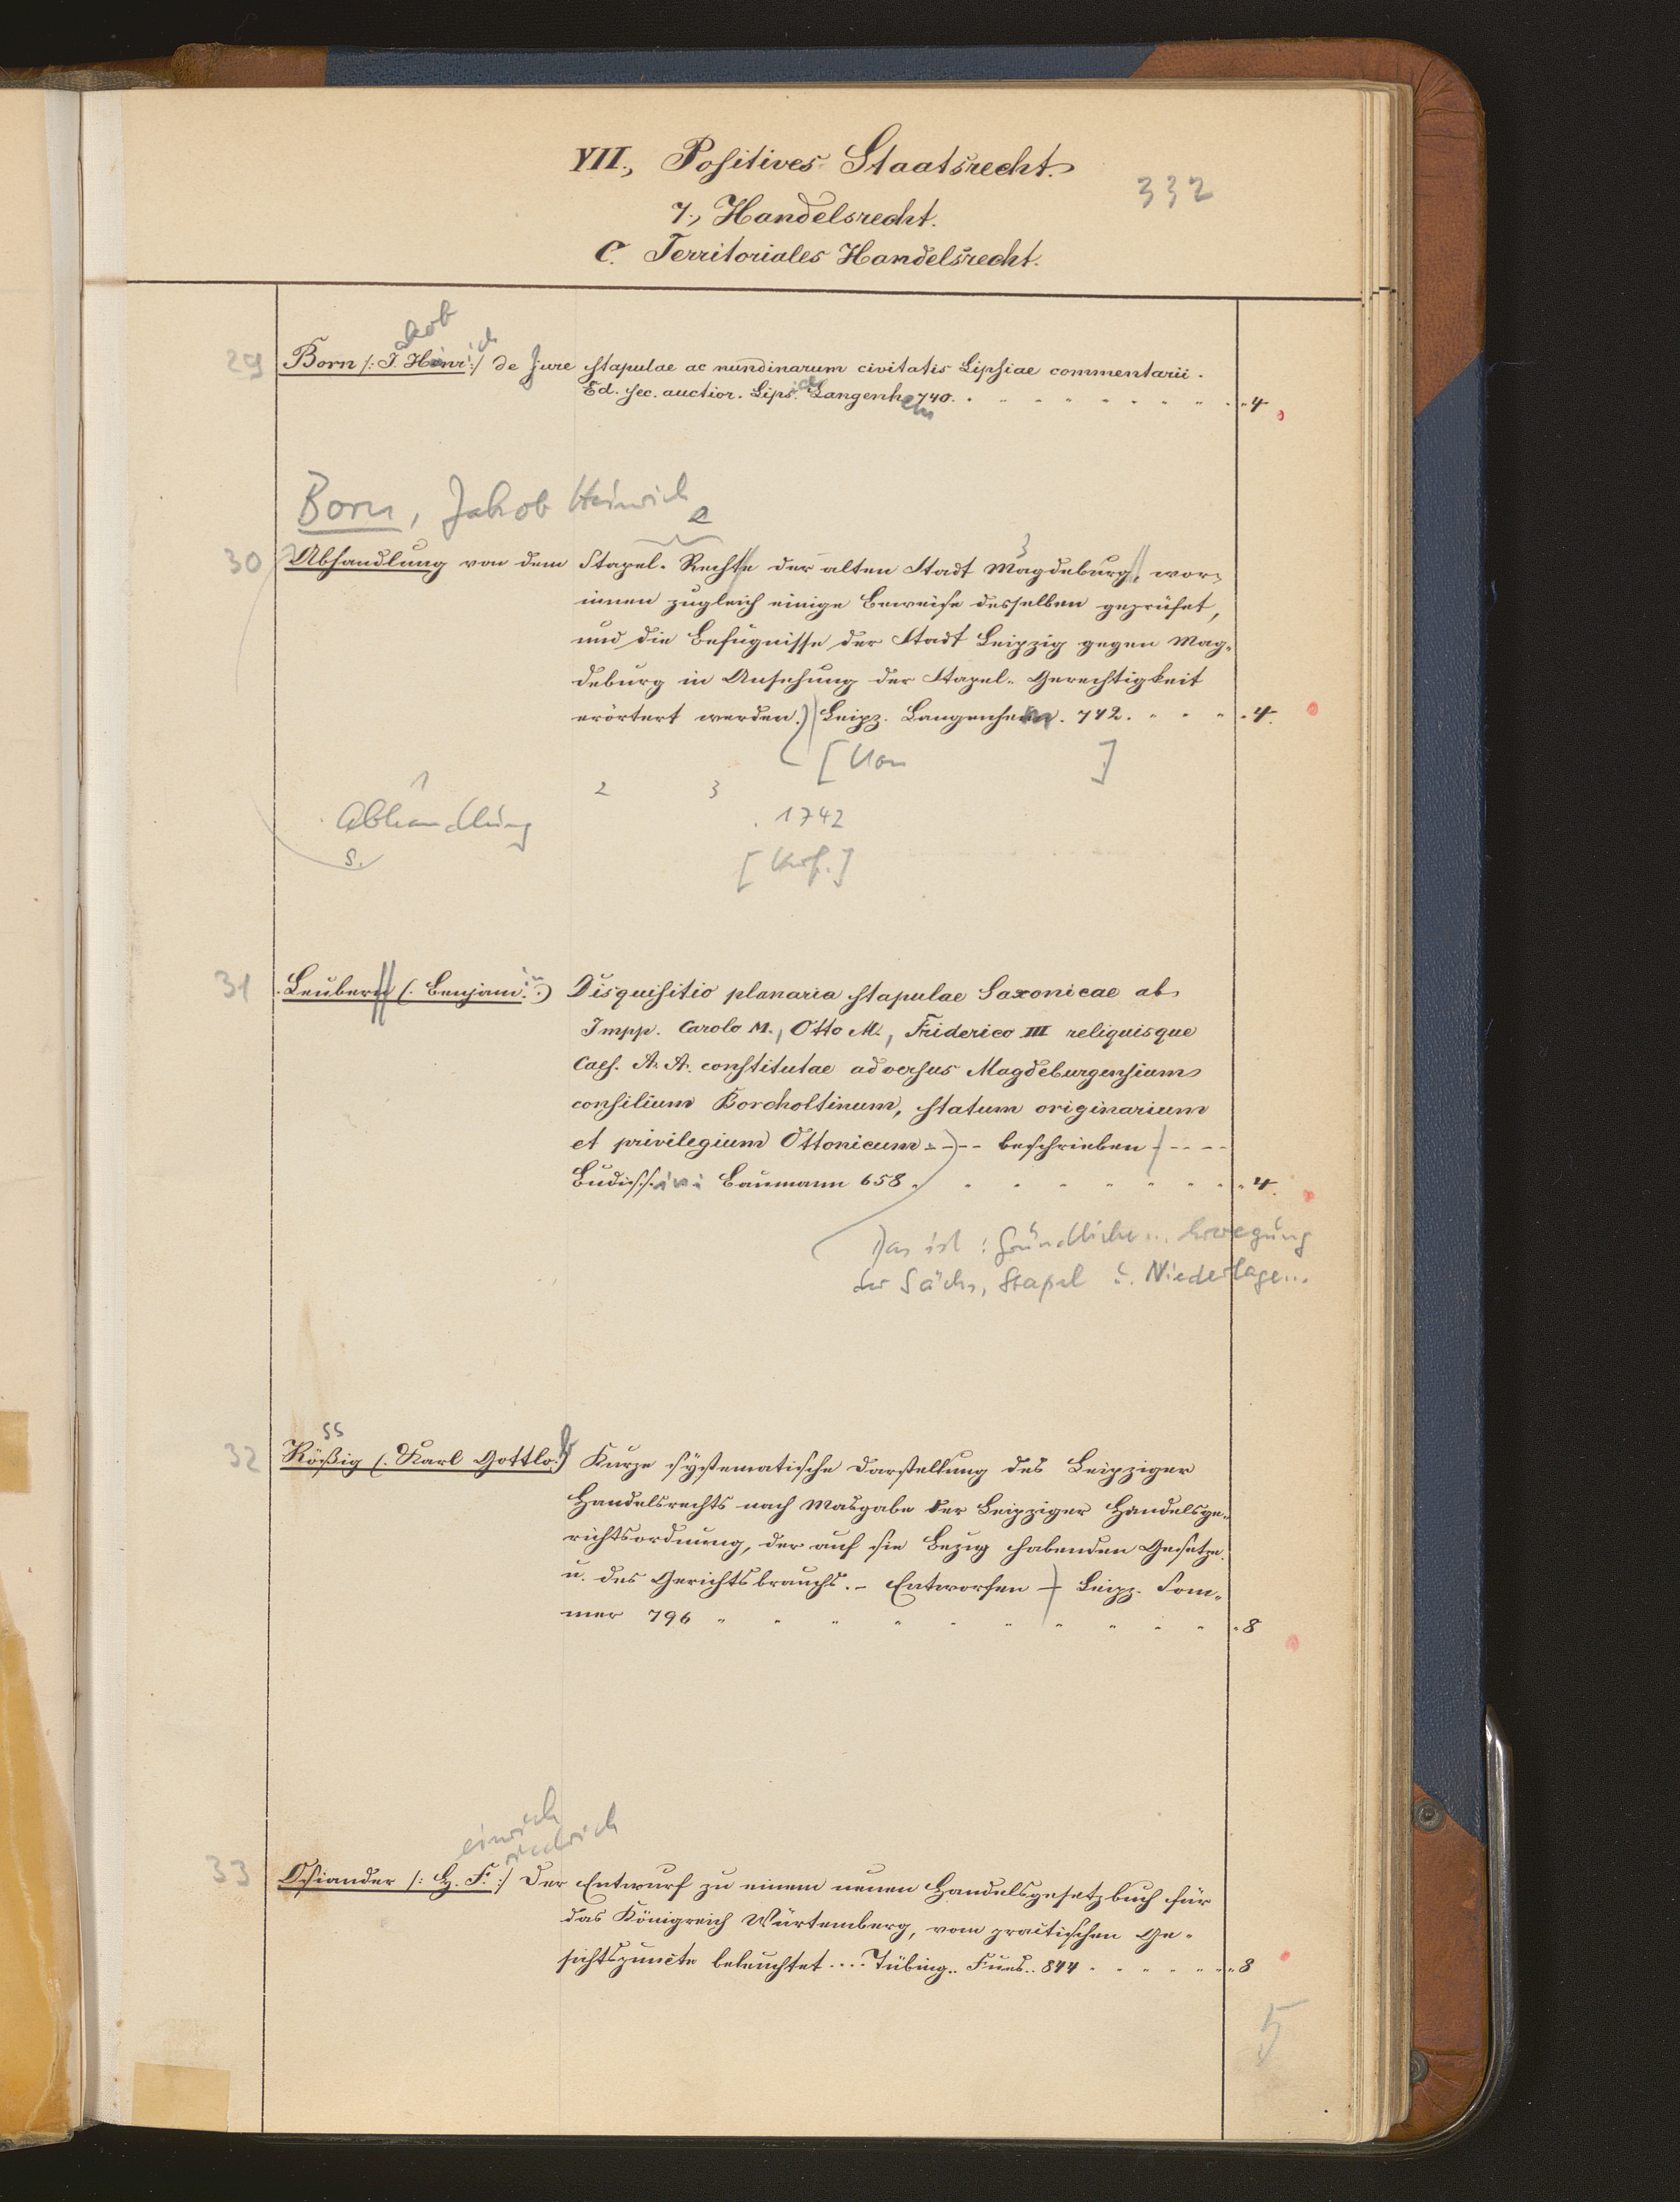 VII., Positives Staatsrecht.
332
7., Handelsrecht.
C. Territoriales Handelsrecht.
akob ich
29 Born /: J. Heinr :/ de Jure Stapulae ac nundinarum civitatis Lipsiae commentarii.
Ed. sec. auctior. Lips. Langenhem 740. 4
Born, Jakob Heinrich
2 3
30 Abhandlung von dem Stapel-Rechte der alten Stadt Magdeburg, wor-
innen zugleich einige Beweise desselben geprüfet,
und die Befugnisse der Stadt Leipzig gegen Mag-
deburg in Ansehung der Stapel-Gerechtigkeit
erörtert werden. Leipz. Langenhem. 742. 4.
[Von ]
1 2 3
Abhandlung 1742
s. [Verf.]
31 Leubern (. Benjamin.) Disquisitio planaria stapulae Saxonicae ab
Impp. Carolo M., Otto M., Friderico III reliquisque
Caes. A. A. constitutae adversus Magdeburgensium
consilium Borcholtinum, statum originarium
et privilegium Ottonicum --- beschrieben ----
Budissini Baumann 658. 4.
Das ist: Gründliche... Erwegung
der Sächs. Stapel u. Niederlage...
ss
32 Rößig (. Karl Gottlob) Kurze systematische Darstellung des Leipziger
Handelsrechts nach Masgabe der Leipziger Handelsge-
richtsordnung, der auf sie Bezug habenden Gesetze
u. des Gerichtsbrauchs. - Entworfen - Leipz. Som-
mer 796 8
einrich
riedrich
33 Osiander /: H. F. :/ Der Entwurf zu einem neuen Handelsgesetzbuch für
das Königreich Würtemberg, vom practischen Ge-
sichtspuncte beleuchtet.... Tübing.. Fues.. 844 8
5